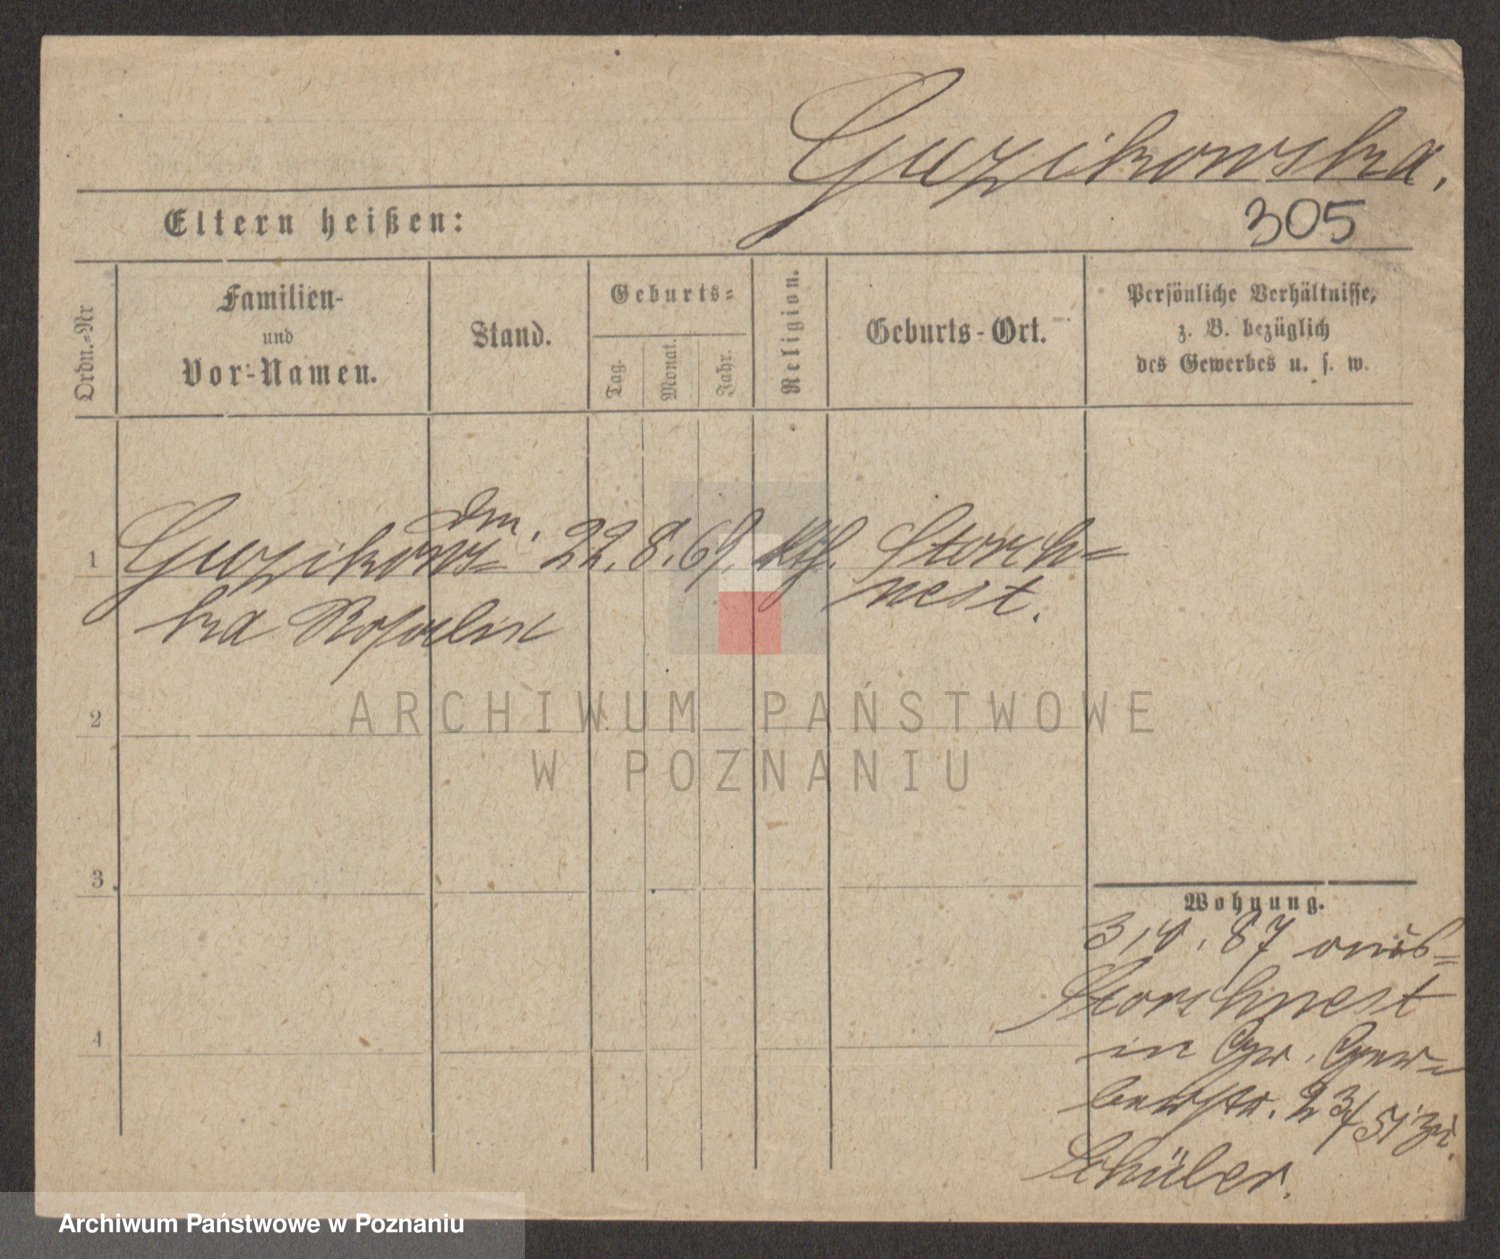 Guzikowska.
Eltern heißen:
305
Ordn.-Nr
Familien-
und
Vor-Namen.
Stand.
Geburts-
Tag.
Monat.
Jahr.
Religion.
Geburts-Ort.
Persönliche Verhältnisse,
z. B. bezüglich
des Gewerbes u. s. w.
1
Guzikows-
ka Rosalie
dm.
22. 8. 69.
kth.
Storch-
nest.
2
3
4
Wohnung.
3/4. 87 aus
Storchnest
in Gr. Ger-
berstr. 23/
Schüler.
ARCHIWUM PAŃSTWOWE
W POZNANIU
Archiwum Państwowe w Poznaniu